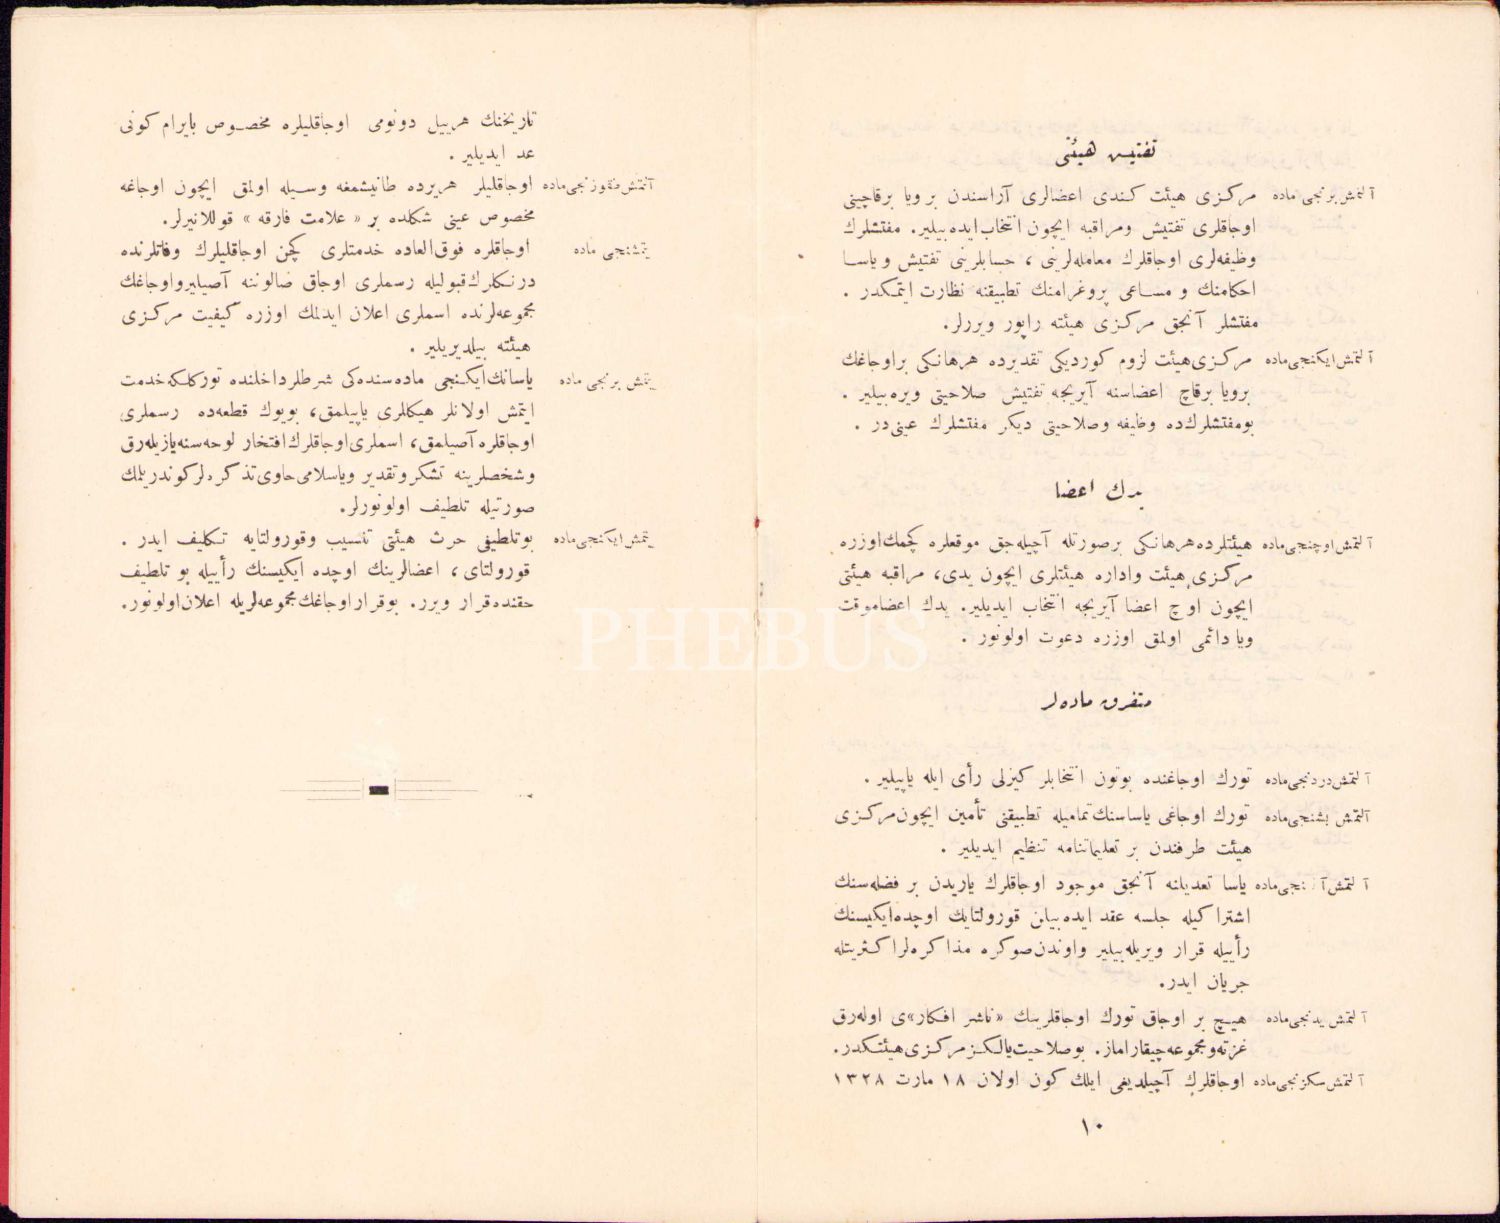 تفتیش هیئتی
آلتمش برنجی ماده مركزی هیئت كندی اعضالری آراسندن بر ویا برقاچینی
اوجاقلری تفتیش ومراقبه ایچون انتخاب‌ایده‌بیلیر. مفتشلرك
وظیفه‌لری اوجاقلرك معامله‌لرینی ، حسابلرینی تفتیش ویاسا
احكامنك و مساعی پروغرامنك تطبیقنه نظارت ایتمكدر .
مفتشلر آنجق مركزی هیئته راپور ویررلر.
آلتمش ایكنجی‌ماده مركزی‌هیئت لزوم كوردیكی تقدیرده هرهانكی براوجاغك
برویا برقاچ اعضاسنه آیریجه تفتیش صلاحیتی ویره‌بیلیر .
بومفتشلرك‌ده وظیفه وصلاحیتی دیكر مفتشلرك عینی‌در .
یدك اعضا
آلتمش‌اوچنجی‌ماده هیئتلرده‌هرهانكی برصورتله آچیله‌جق موقعلره كچمك‌اوزره
مركزی‌هیئت واداره هیئتلری ایچون یدی، مراقبه هیئتی
ایچون اوچ اعضا آیریجه انتخاب ایدیلیر. یدك اعضاموقت
ویا دائمی اولمق اوزره دعوت اولونور .
متفرق ماده‌لر
آلتمش‌دردنجی‌ماده تورك اوجاغنده بوتون انتخابلر كیزلی رأی ایله یاپیلیر .
آلتمش بشنجی‌ماده تورك اوجاغی یاساسنك‌تمامیله تطبیقنی تأمین ایچون‌مركزی
هیئت طرفندن بر تعلیماتنامه تنظیم ایدیلیر .
آلتمش‌آلتنجی‌ماده یاسا تعدیلنه آنجق موجود اوجاقلرك یاریدن بر فضله‌سنك
اشتراكیله جلسه عقد ایده‌بیلن قورولتایك اوچده‌ایكیسنك
رأییله قرار ویریله‌بیلیر واوندن‌صوكره مذاكره‌لراكثریتله
جریان ایدر.
آلتمش یدنجی‌ماده هیچ بر اوجاق تورك اوجاقلرینك «ناشر افكار»ی اوله‌رق
غزته‌ومجموعه‌چیقاراماز. بوصلاحیت‌یالكزمركزی‌هیئتكدر.
آلتمش‌سكزنجی‌ماده اوجاقلرك آچیلدیغی ایلك كون اولان ١٨ مارت ١٣٢٨
١٠
تاریخنك هرییل دونومی اوجاقلیلره مخصوص بایرام كونی
عد ایدیلیر .
آلتمش‌طقوزنجی‌ماده اوجاقلیلر هریرده طانیشمغه وسیله اولمق ایچون اوجاغه
مخصوص عینی شكلده بر « علامت فارقه » قوللانیرلر.
یتمشنجی ماده اوجاقلره فوق‌العاده خدمتلری كچن اوجاقلیلرك وفاتلرنده
درنكلرك‌قبولیله رسملری اوجاق صالوننه آصیلیرواوجاغك
مجموعه‌لرنده اسملری اعلان ایدلمك اوزره كیفیت مركزی
هیئته بیلدیریلیر .
یتمش برنجی ماده یاسانك‌ایكنجی ماده‌سنده‌كی شرطلرداخلنده توركلكه‌خدمت
ایتمش اولانلر هیكللری یاپیلمق، بویوك قطعه‌ده رسملری
اوجاقلره آصیلمق، اسملری‌اوجاقلرك‌افتخار لوحه‌سنه‌یازیله‌رق
وشخصلرینه تشكروتقدیر ویاسلامی‌حاوی‌تذكره‌لركوندریلمك
صورتیله تلطیف اولونورلر.
یتمش‌ایكنجی‌ماده بوتلطیفی حرث هیئتی تنسیب وقورولتایه تكلیف ایدر .
قورولتای، اعضالرینك اوچده ایكیسنك رأییله بو تلطیف
حقنده‌قرار ویرر. بوقراراوجاغك‌مجموعه‌لریله اعلان‌اولونور.
PHEBUS